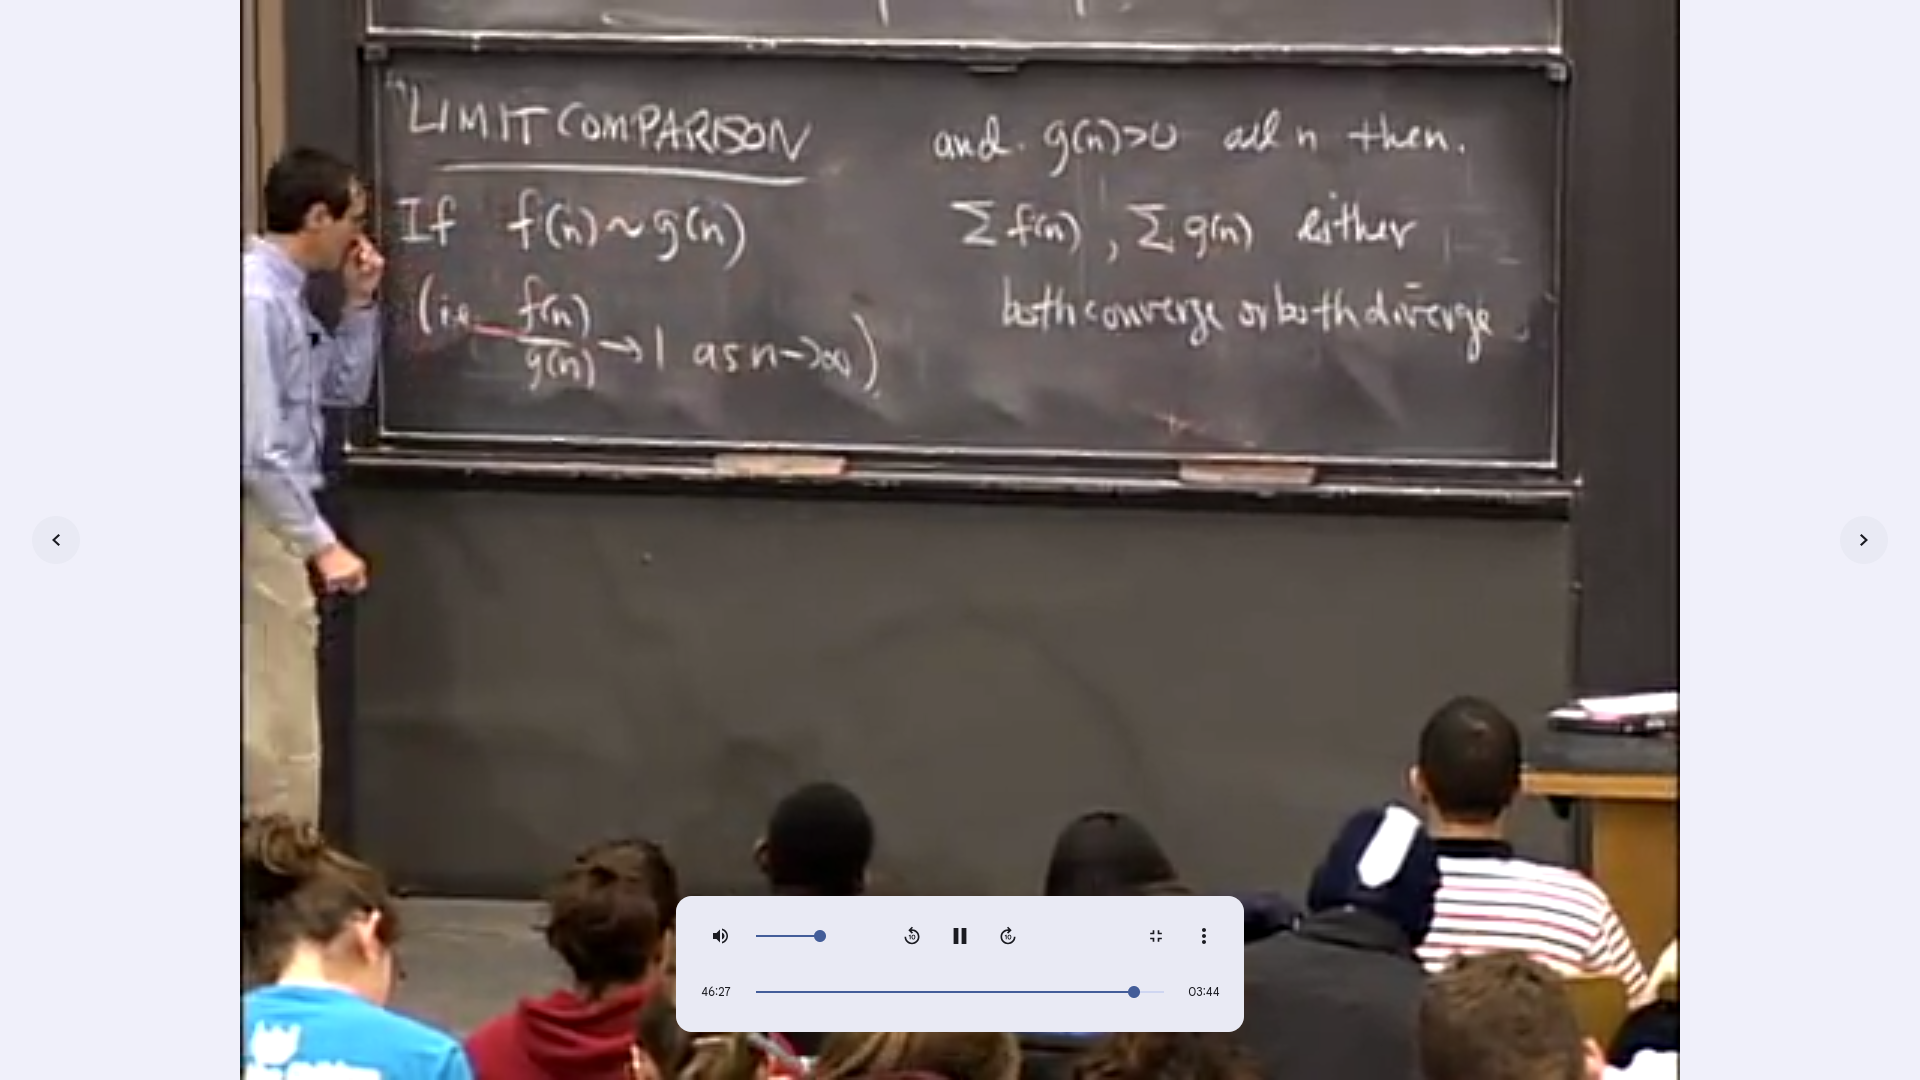 "LIMIT COMPARISON
If f(n)~g(n)
(i.e. f(n)/g(n) → 1 as n→∞)
and. g(n)>0 all n then.
Σ f(n), Σ g(n) either
both converge or both diverge.
10
10
46:27
03:44